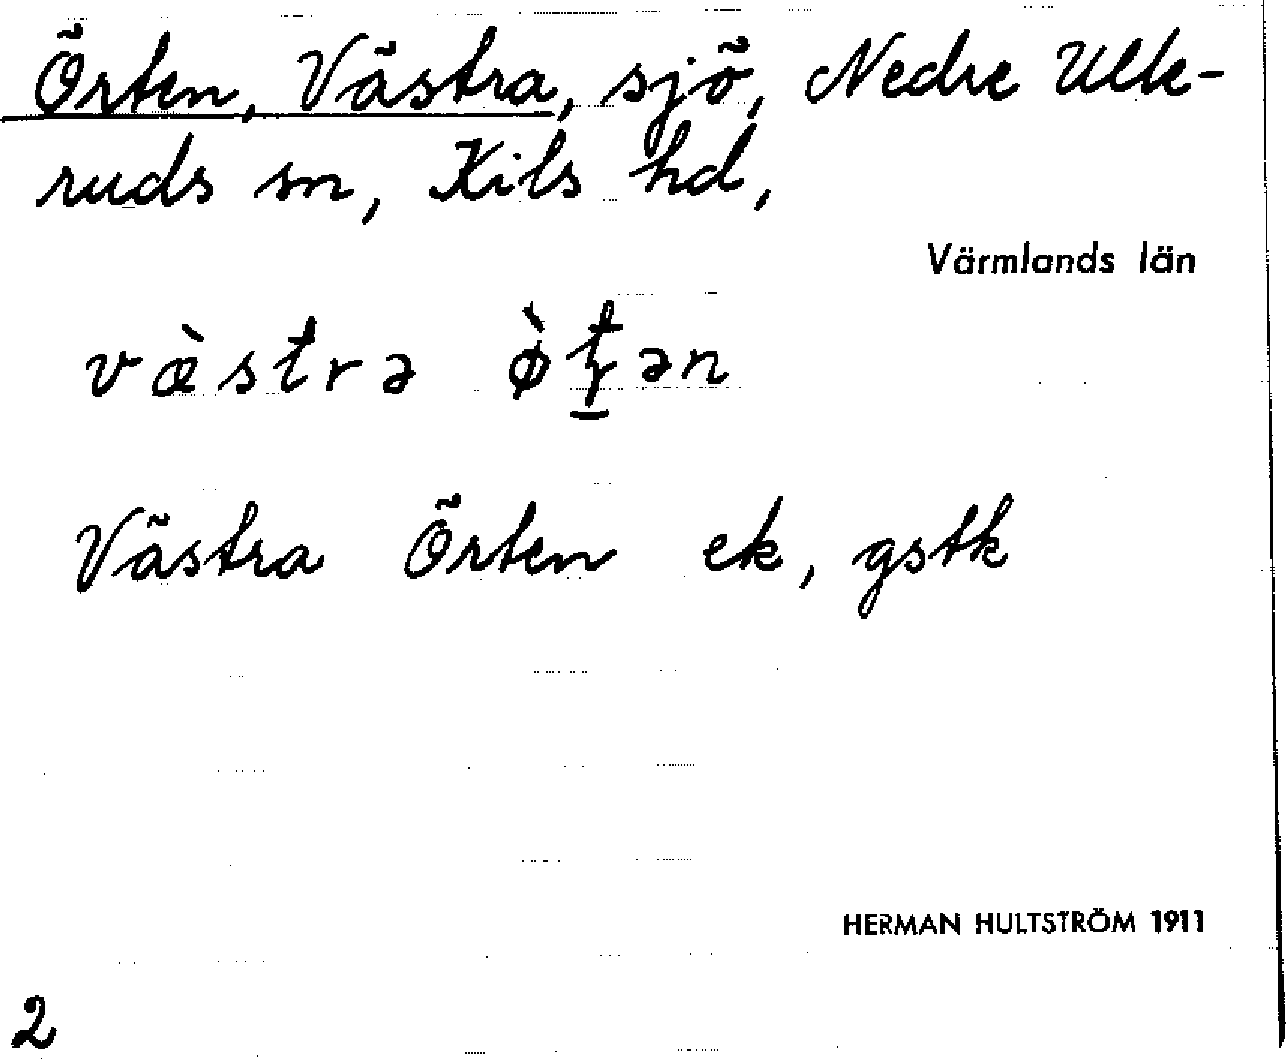 Örten, Västra, sjö, Nedre Ulle-
ruds sn, Kils hd,
Värmlands län
væ̀stra
Västra Örten ek, gstk
HERMAN HULTSTRÖM 1911
2